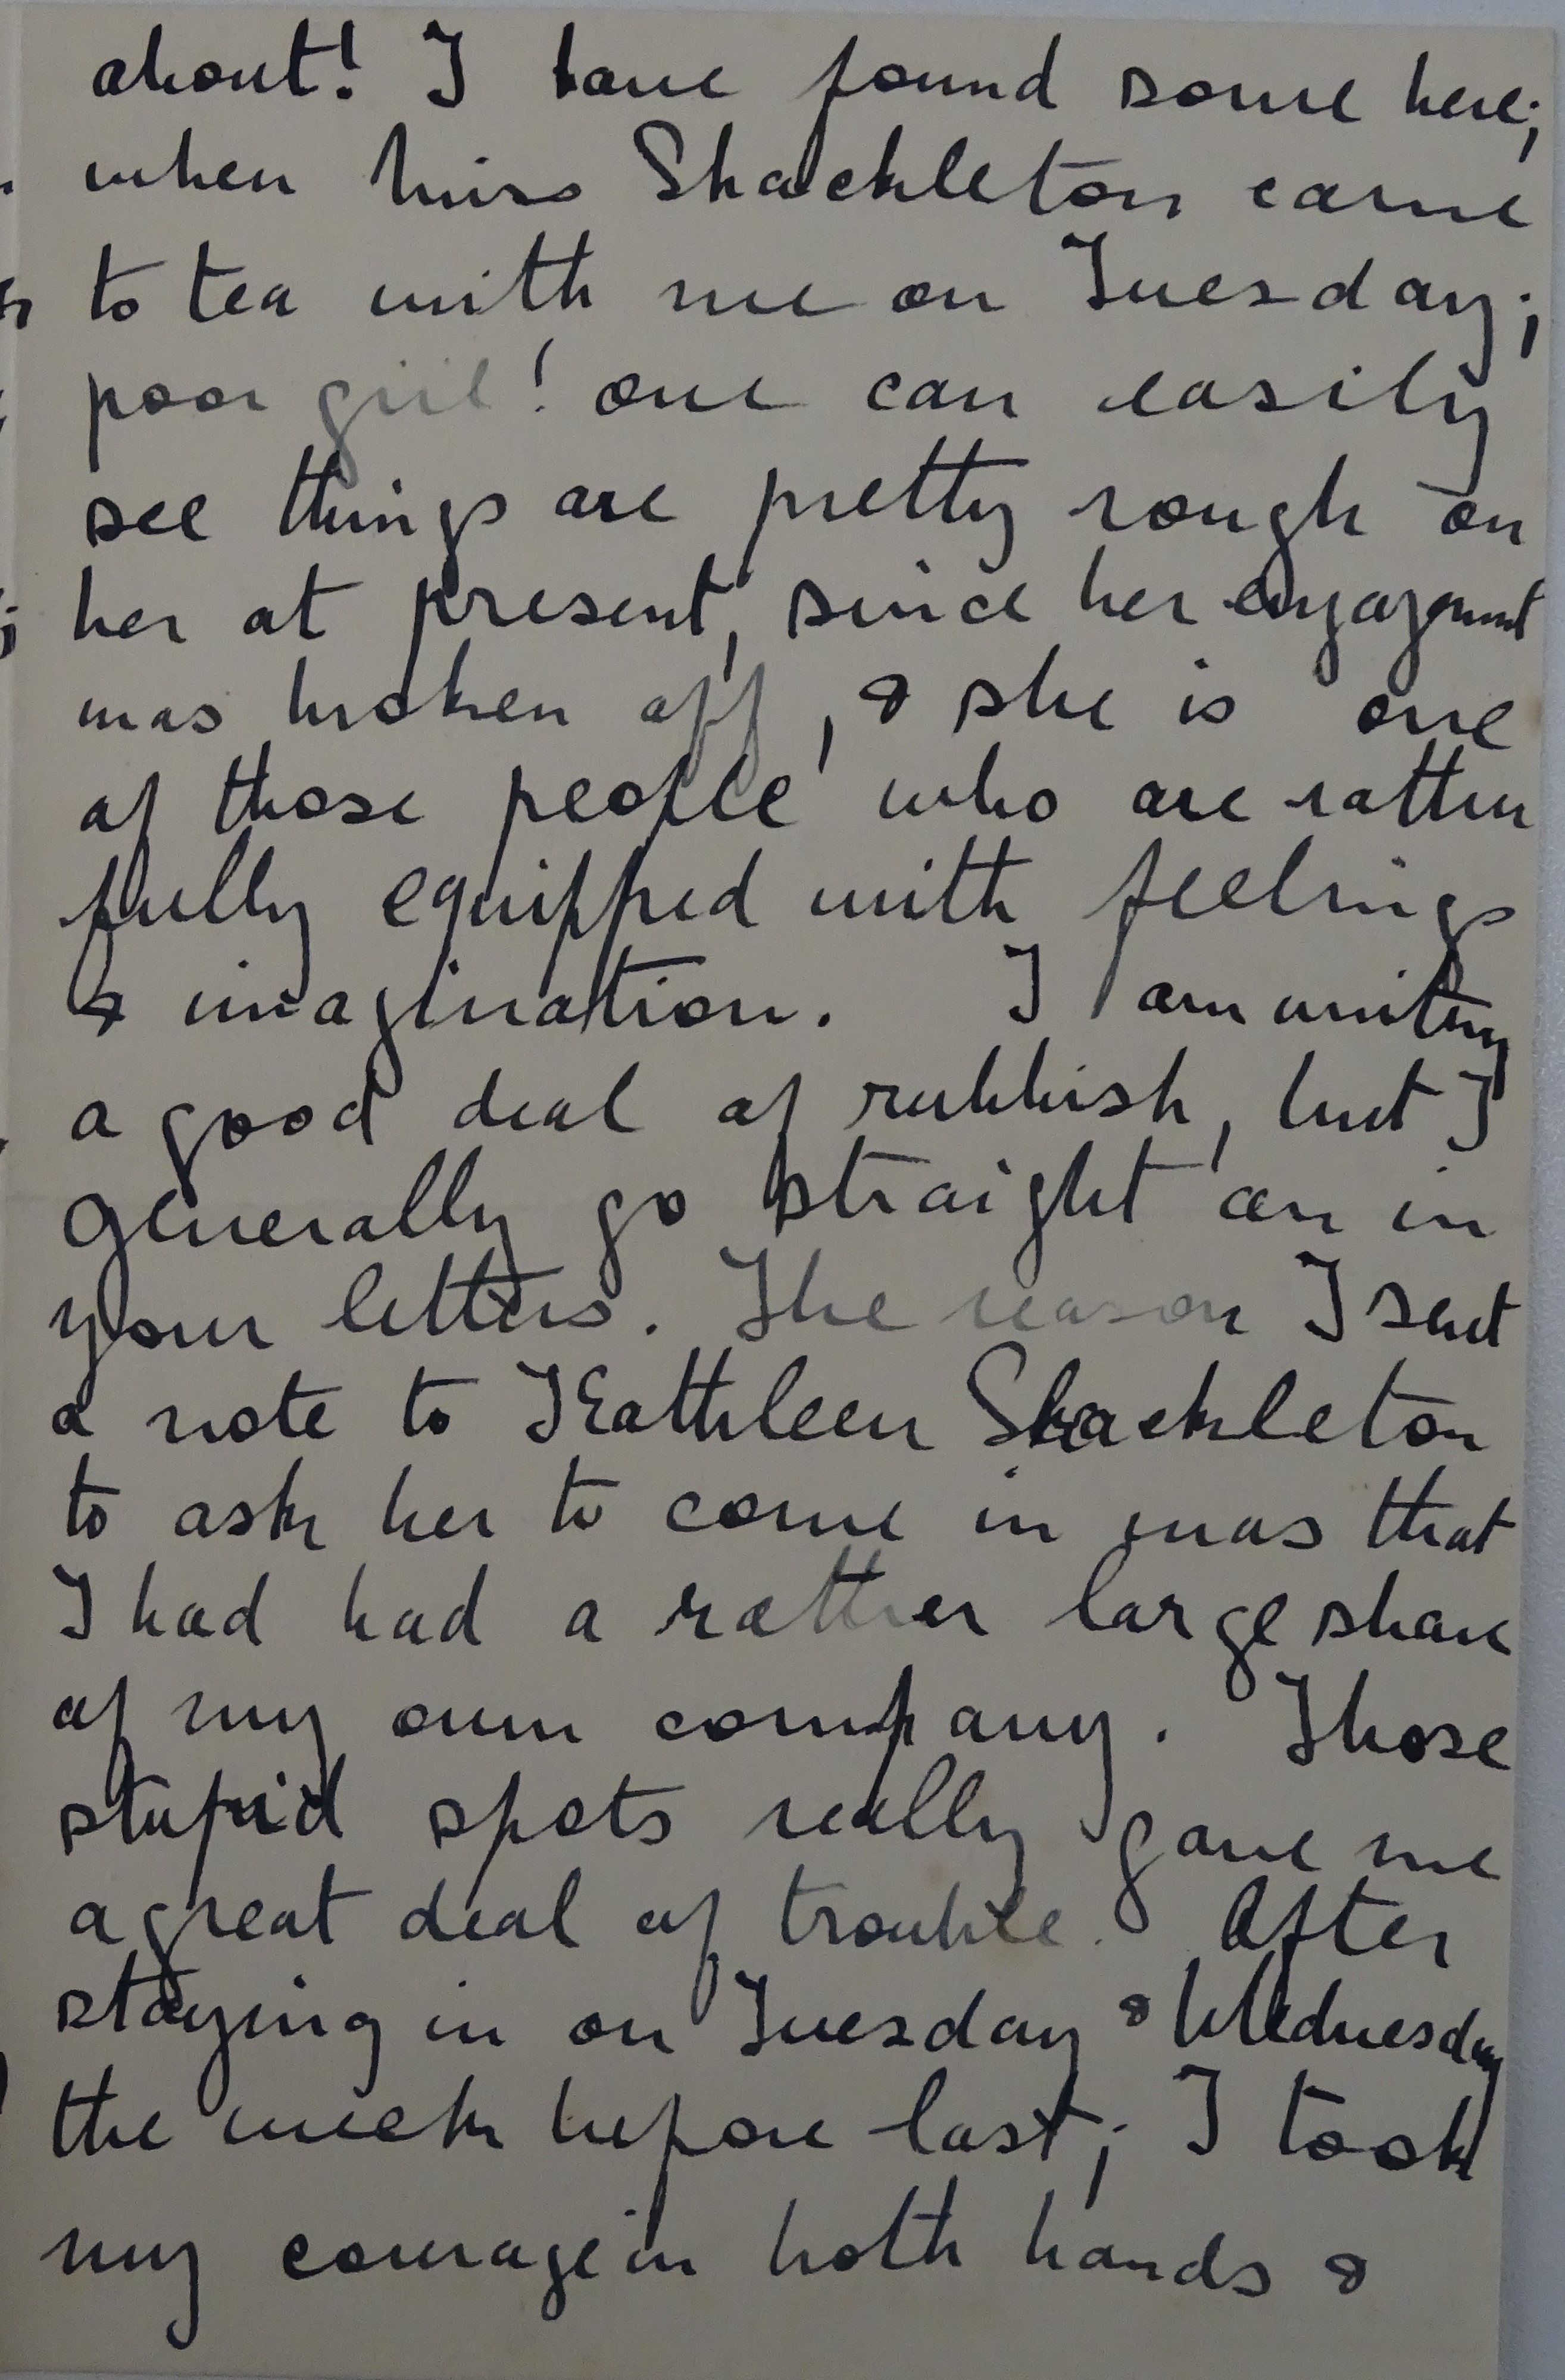 about! I have found some here;
when Miss Shackleton came
to tea with me on Tuesday;
poor girl! one can easily
see things are pretty rough on
her at present, since her engagement
was broken off, & she is one
of those people who are rather
fully equipped with feelings
& imagination. I am writing
a good deal of rubbish, but I
generally go straight on in
your letters. The reason I sent
a note to Kathleen Shackleton
to ask her to come in was that
I had had a rather large share
of my own company. Those
stupid spots really gave me
a great deal of trouble. After
staying in on Tuesday & Wednesday
the week before last; I took
my courage in both hands &